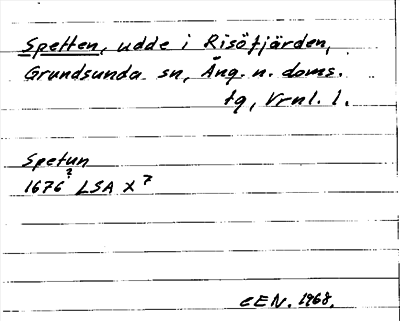 Spetten, udde i Risöfjärden,
Grundsunda sn, Ång. n. doms.
tg, Vrnl. l.
Spetun
1676? LSA X 7
CEN. 1968.